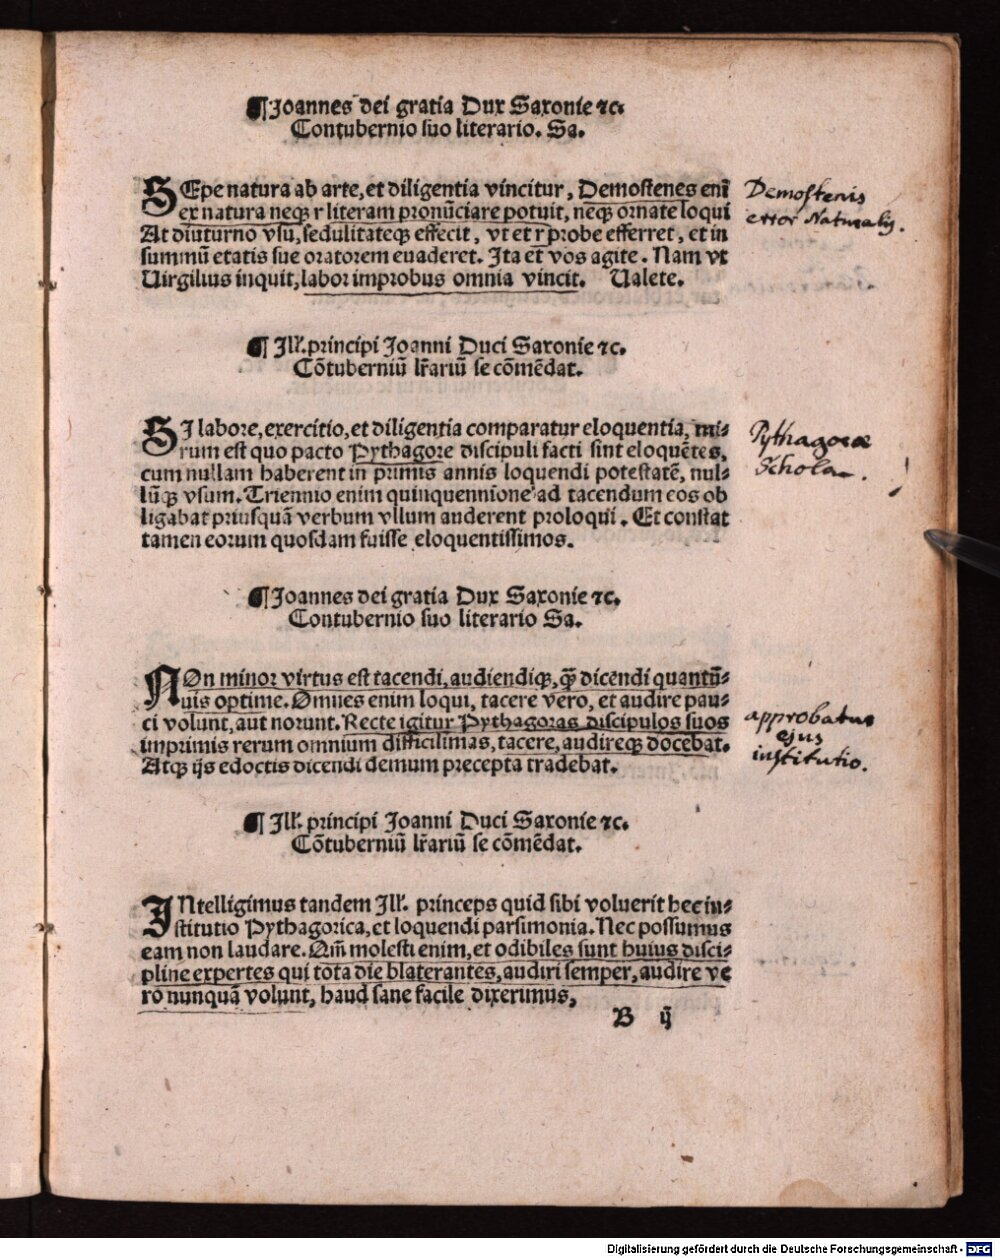 ¶ Joannes dei gratia Dux Saxonie ⁊c.
Contubernio suo literario. Sa.
SEpe natura ab arte, et diligentia vincitur, Demostenes enĩ
ex natura neqꝫ r literam pronũciare potuit, neqꝫ ornate loqui
At diuturno vsu, sedulitateqꝫ effecit, vt et r probe efferret, et in
summũ etatis sue oratorem euaderet. Ita et vos agite. Nam vt
Uirgilius inquit, labor improbus omnia vincit. Ualete.
Demostenis
error Naturalis.
¶ Ill’. principi Joanni Duci Saxonie ⁊c.
Cõtuberniũ lr̃ariũ se cõmẽdat.
SI labore, exercitio, et diligentia comparatur eloquentia, mi⸗
rum est quo pacto Pythagore discipuli facti sint eloquẽtes,
cum nullam haberent in primis annis loquendi potestatẽ, nul⸗
lũqꝫ vsum. Triennio enim quinquennione ad tacendum eos ob
ligabat priusquã verbum vllum auderent proloqui. Et constat
tamen eorum quosdam fuisse eloquentissimos.
Pythagorae
Schola. !
¶ Joannes dei gratia Dux Saxonie ⁊c.
Contubernio suo literario Sa.
NOn minor virtus est tacendi, audiendiqꝫ, q̃ dicendi quantũ⸗
uis optime. Omnes enim loqui, tacere vero, et audire pau⸗
ci volunt, aut norunt. Recte igitur Pythagoras discipulos suos
imprimis rerum omnium difficilimas, tacere, audireqꝫ docebat.
Atqꝫ ijs edoctis dicendi demum precepta tradebat.
approbatur
ejus
institutio.
¶ Ill’. principi Joanni Duci Saxonie ⁊c.
Cõtuberniũ lr̃ariũ se cõmẽdat.
INtelligimus tandem Ill’. princeps quid sibi voluerit hec in⸗
stitutio Pythagorica, et loquendi parsimonia. Nec possumus
eam non laudare. Qm̃ molesti enim, et odibiles sunt huius disci⸗
pline expertes qui tota die blaterantes, audiri semper, audire ve
ro nunquã volunt, haud sane facile dixerimus,
B ij
Digitalisierung gefördert durch die Deutsche Forschungsgemeinschaft - DFG